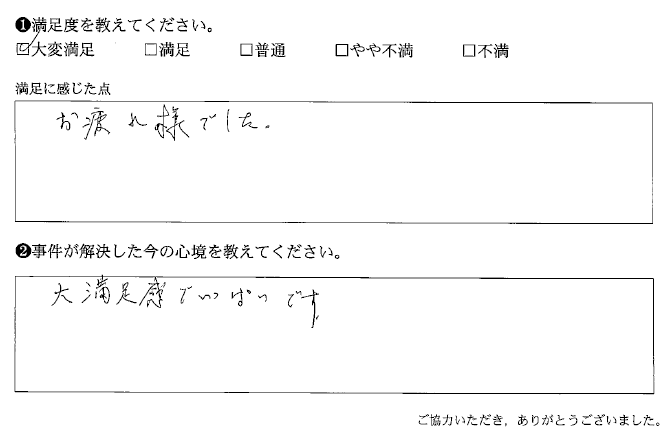 ❶満足度を教えてください。
☑大変満足 □満足 □普通 □やや不満 □不満
満足に感じた点
お疲れ様でした。
❷事件が解決した今の心境を教えてください。
大満足感でいっぱいです
ご協力いただき，ありがとうございました。